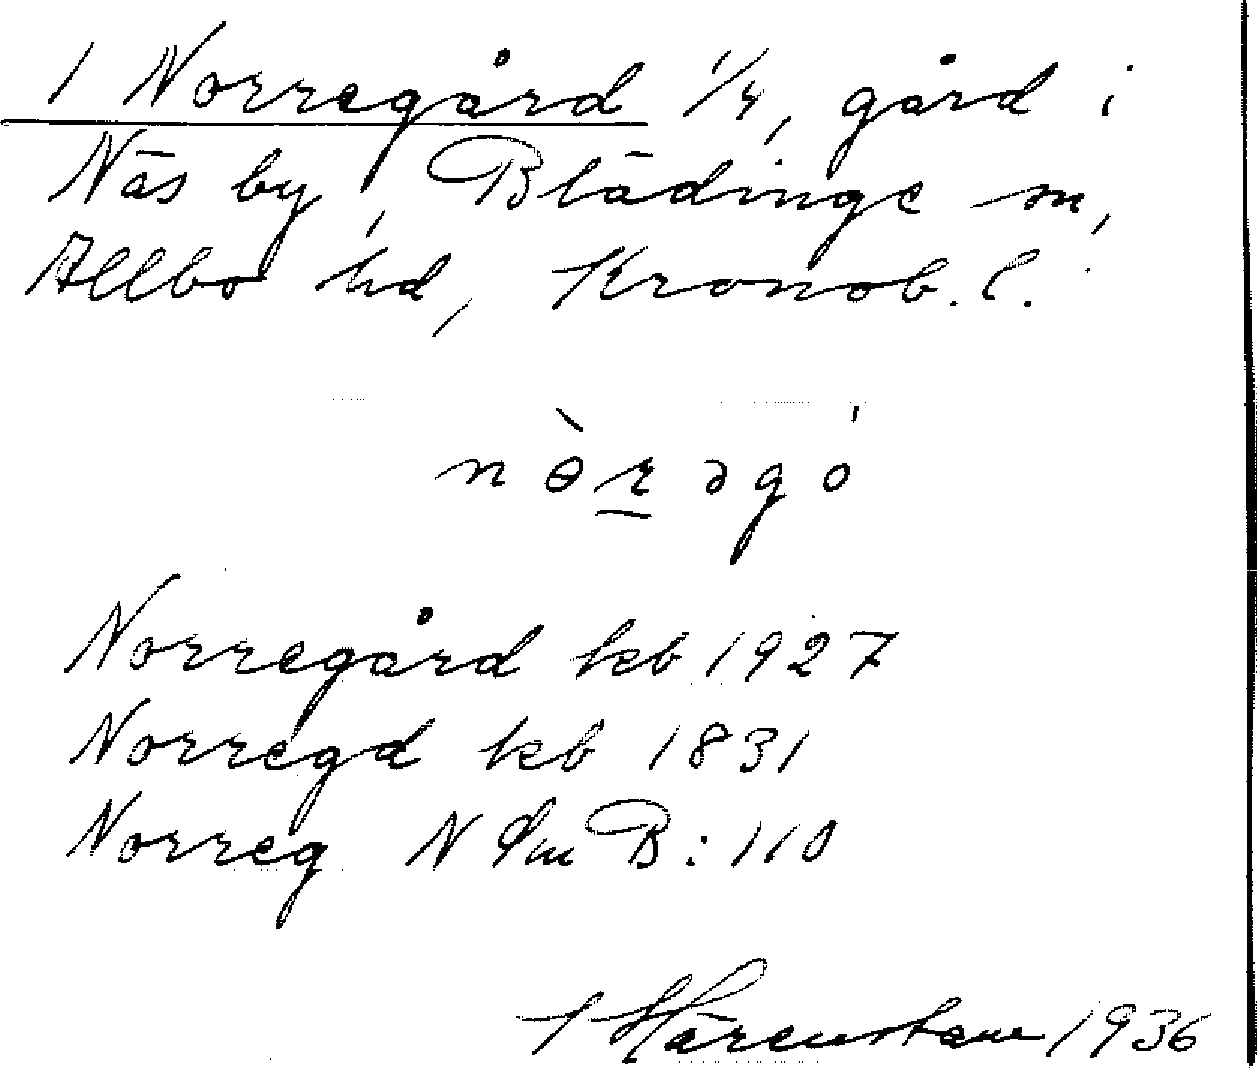 1 Norregård 1/4, gård i
Näs by, Blädinge sn,
Allbo hd, Kronob. l.
nɵ̀rəgó
Norregård kb 1927
Norregd kb 1831
Norreg N Sm B: 110
1936